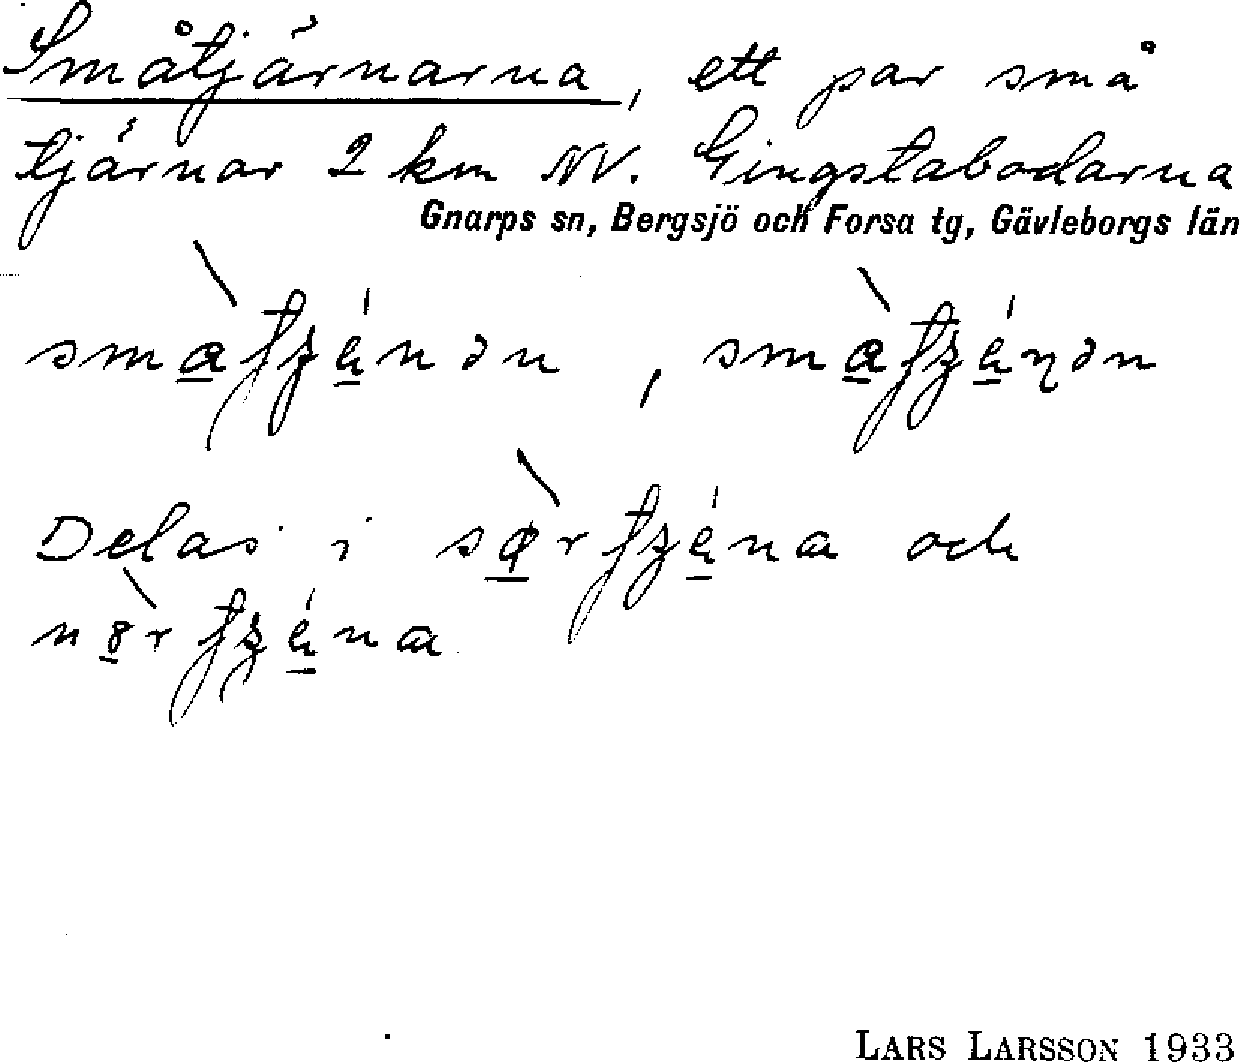 Småtjärnarna, ett par små
tjärnar 2 km NV. Gingstabodarna
Gnarps sn, Bergsjö och Forsa tg, Gävleborgs län
Delas i och
LARS LARSSON 1933